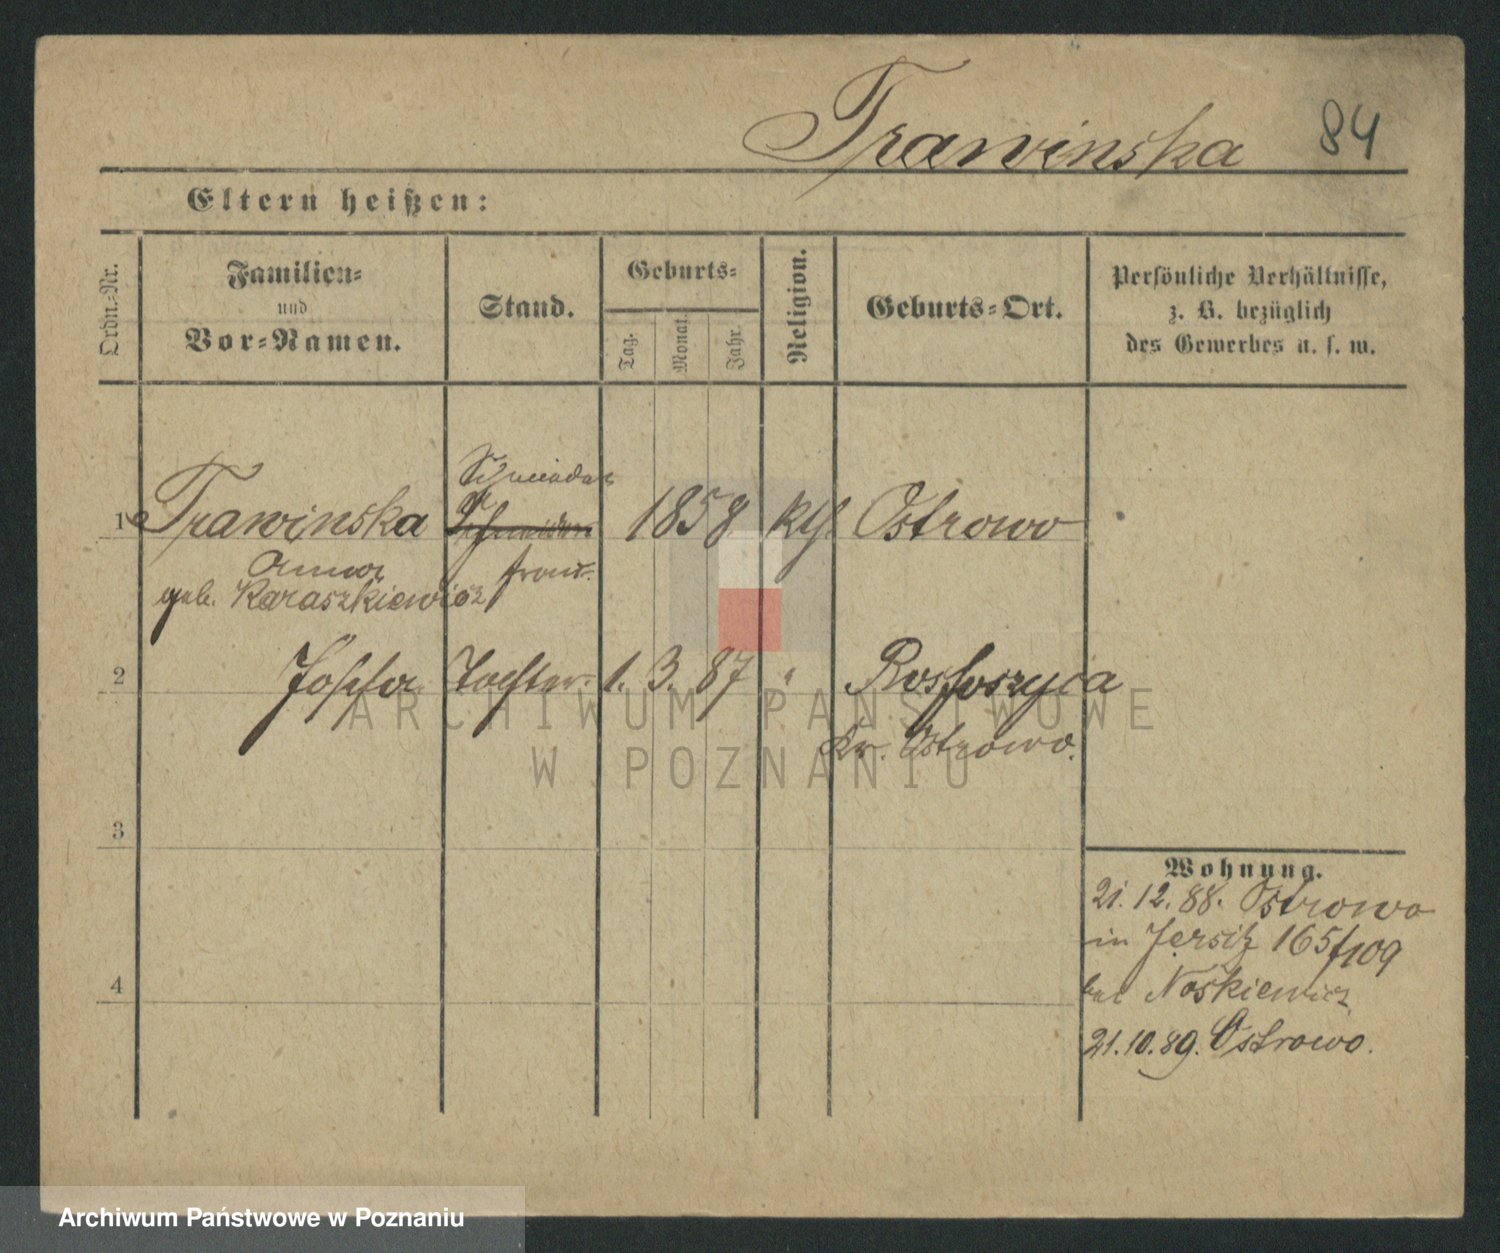 Trawinska 84
Eltern heißen:
Ordn.-Nr.
Familien-
und
Vor-Namen.
Stand.
Geburts-
Tag.
Monat.
Jahr.
Religion.
Geburts-Ort.
Persönliche Verhältnisse,
z. B. bezüglich
des Gewerbes u. s. w.
1 Trawinska 1858 kth. Ostrowo
Anna frau.
geb. Karaszkiewicz
2 Josefa Tochter. 1. 3. 87 " Rososzyca
Kr. Ostrowo.
3
4
Wohnung.
21. 12. 88. Ostrowo
in Jersitz 165/109
bei Noskiewicz
21. 10. 89. Ostrowo.
ARCHIWUM PAŃSTWOWE
W POZNANIU
Archiwum Państwowe w Poznaniu